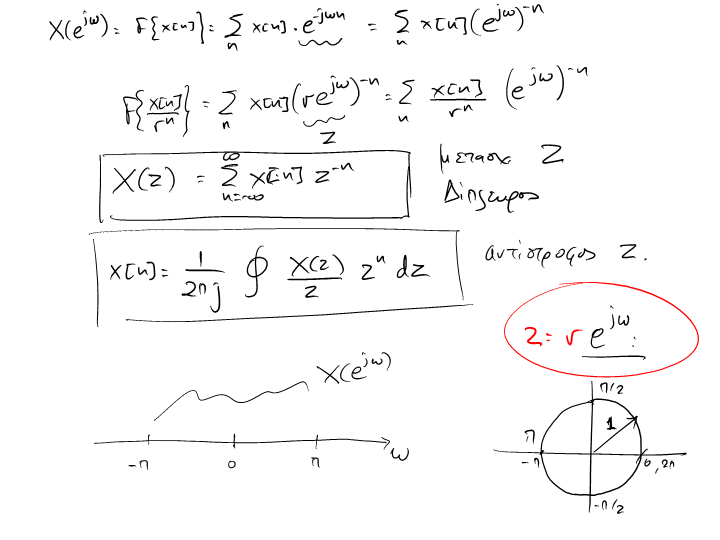 X(e^{jω}) = F{x[n]} = Σ_n x[n] · e^{-jωn} = Σ_n x[n] (e^{jω})^{-n}
F{x[n]/r^n} = Σ_n x[n] (r e^{jω})^{-n} = Σ_n x[n]/r^n (e^{jω})^{-n}
z
X(z) = Σ_{n=-∞}^{∞} x[n] z^{-n}
μετασχ Z
Δίπλευρος
x[n] = 1/(2πj) ∮ X(z)/z z^n dz
αντίστροφος Z.
z = r e^{jω} :
X(e^{jω})
-π 0 π ω
π/2
1
π
-π 0, 2π
-π/2